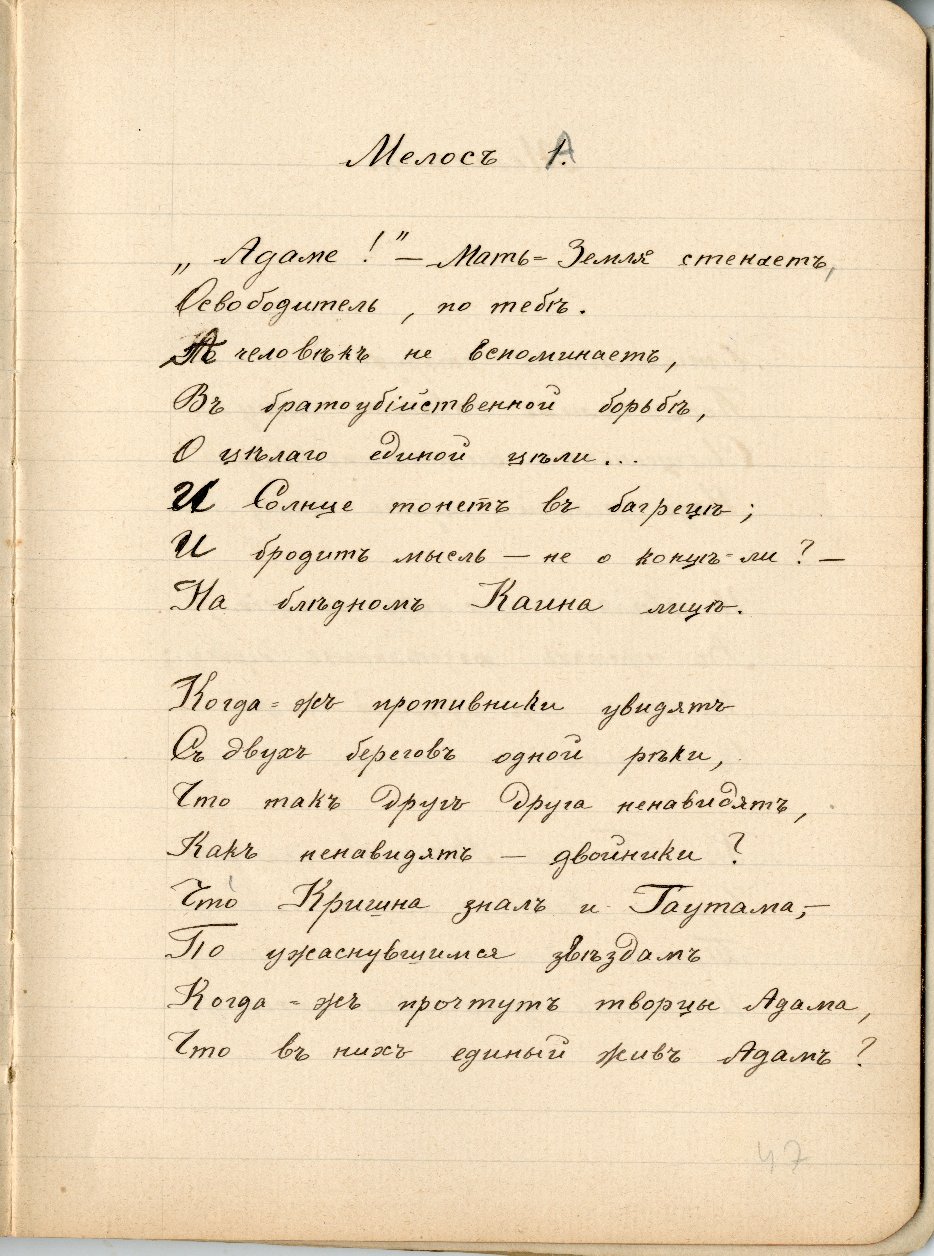 Мелосъ 1.
„Адаме!” — Мать-Земля стенаетъ,
Освободитель, по тебѣ.
А человѣкъ не вспоминаетъ,
Въ братоубійственной борьбѣ,
О цѣлаго единой цѣли...
И Солнце тонетъ въ багрецѣ;
И бродитъ мысль — не о концѣ-ли? —
На блѣдномъ Каина лицѣ.
Когда-жъ противники увидятъ
Съ двухъ береговъ одной рѣки,
Что такъ другъ друга ненавидятъ,
Какъ ненавидятъ — двойники?
Что́ Кришна зналъ и Гаутама, —
По ужаснувшимся звѣздамъ
Когда-жъ прочтутъ творцы Адама,
Что въ нихъ единый живъ Адамъ?
47